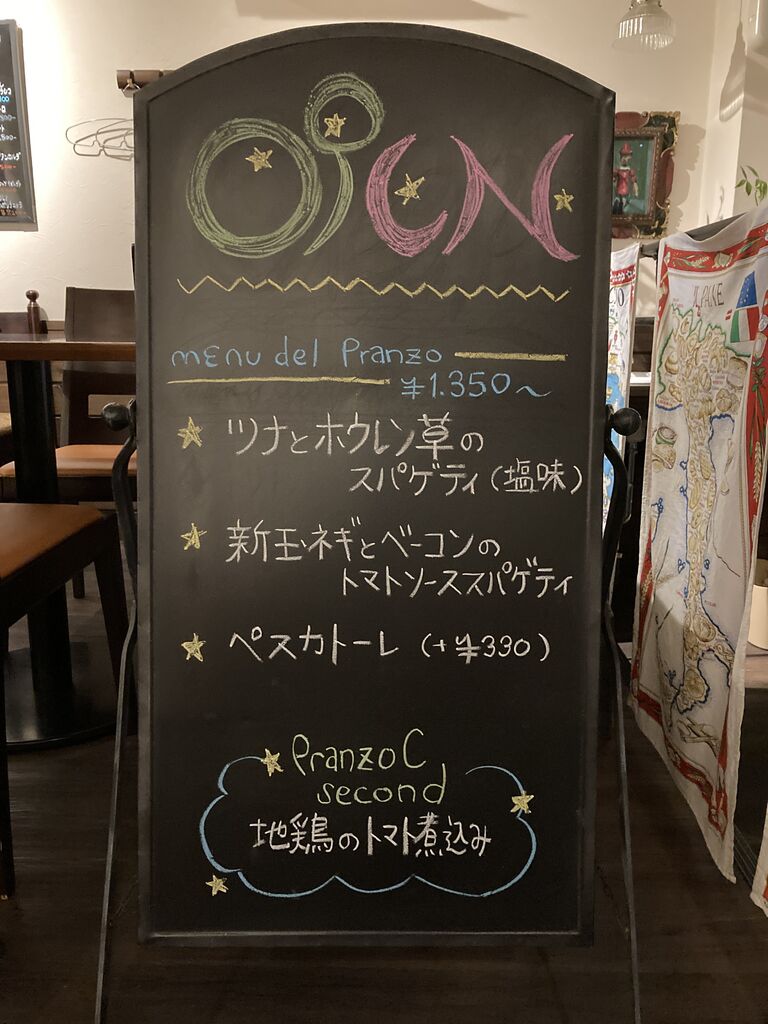 OPEN
menu del Pranzo
¥1.350〜
ツナとホウレン草の
スパゲティ(塩味)
新玉ネギとベーコンの
トマトソーススパゲティ
ペスカトーレ (+¥330)
Pranzo C
second
地鶏のトマト煮込み
PANE